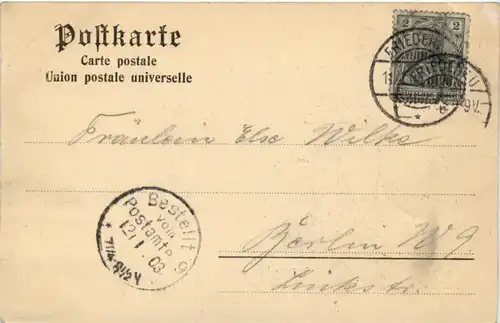 Postkarte
Carte postale
Union postale universelle
2 2
FRIEDENAU
Fräulein Else Wilke
Bestellt
vom
Postamte 9
12/1 03
7¼-8½ V
Berlin W 9
Linkstr.